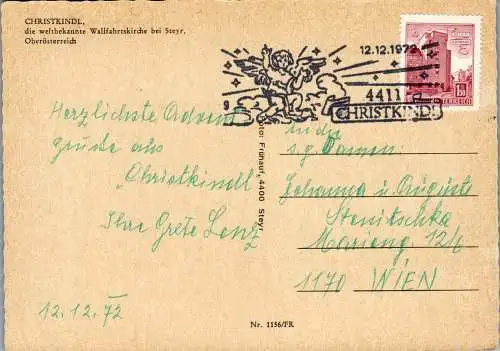 CHRISTKINDL,
die weltbekannte Wallfahrtskirche bei Steyr,
Oberösterreich
12.12.1972
4411
CHRISTKINDL
9
1.50
Herzlichste Advent
grüße aus
"Christkindl
Ihre Grete Lenz
12.12.72
Foto: Frühauf, 4400 Steyr.
s.g. Damen
Johanna u. Auguste
Stenitschka
Marieng 12/6
1170 WIEN
Nr. 1156/FR